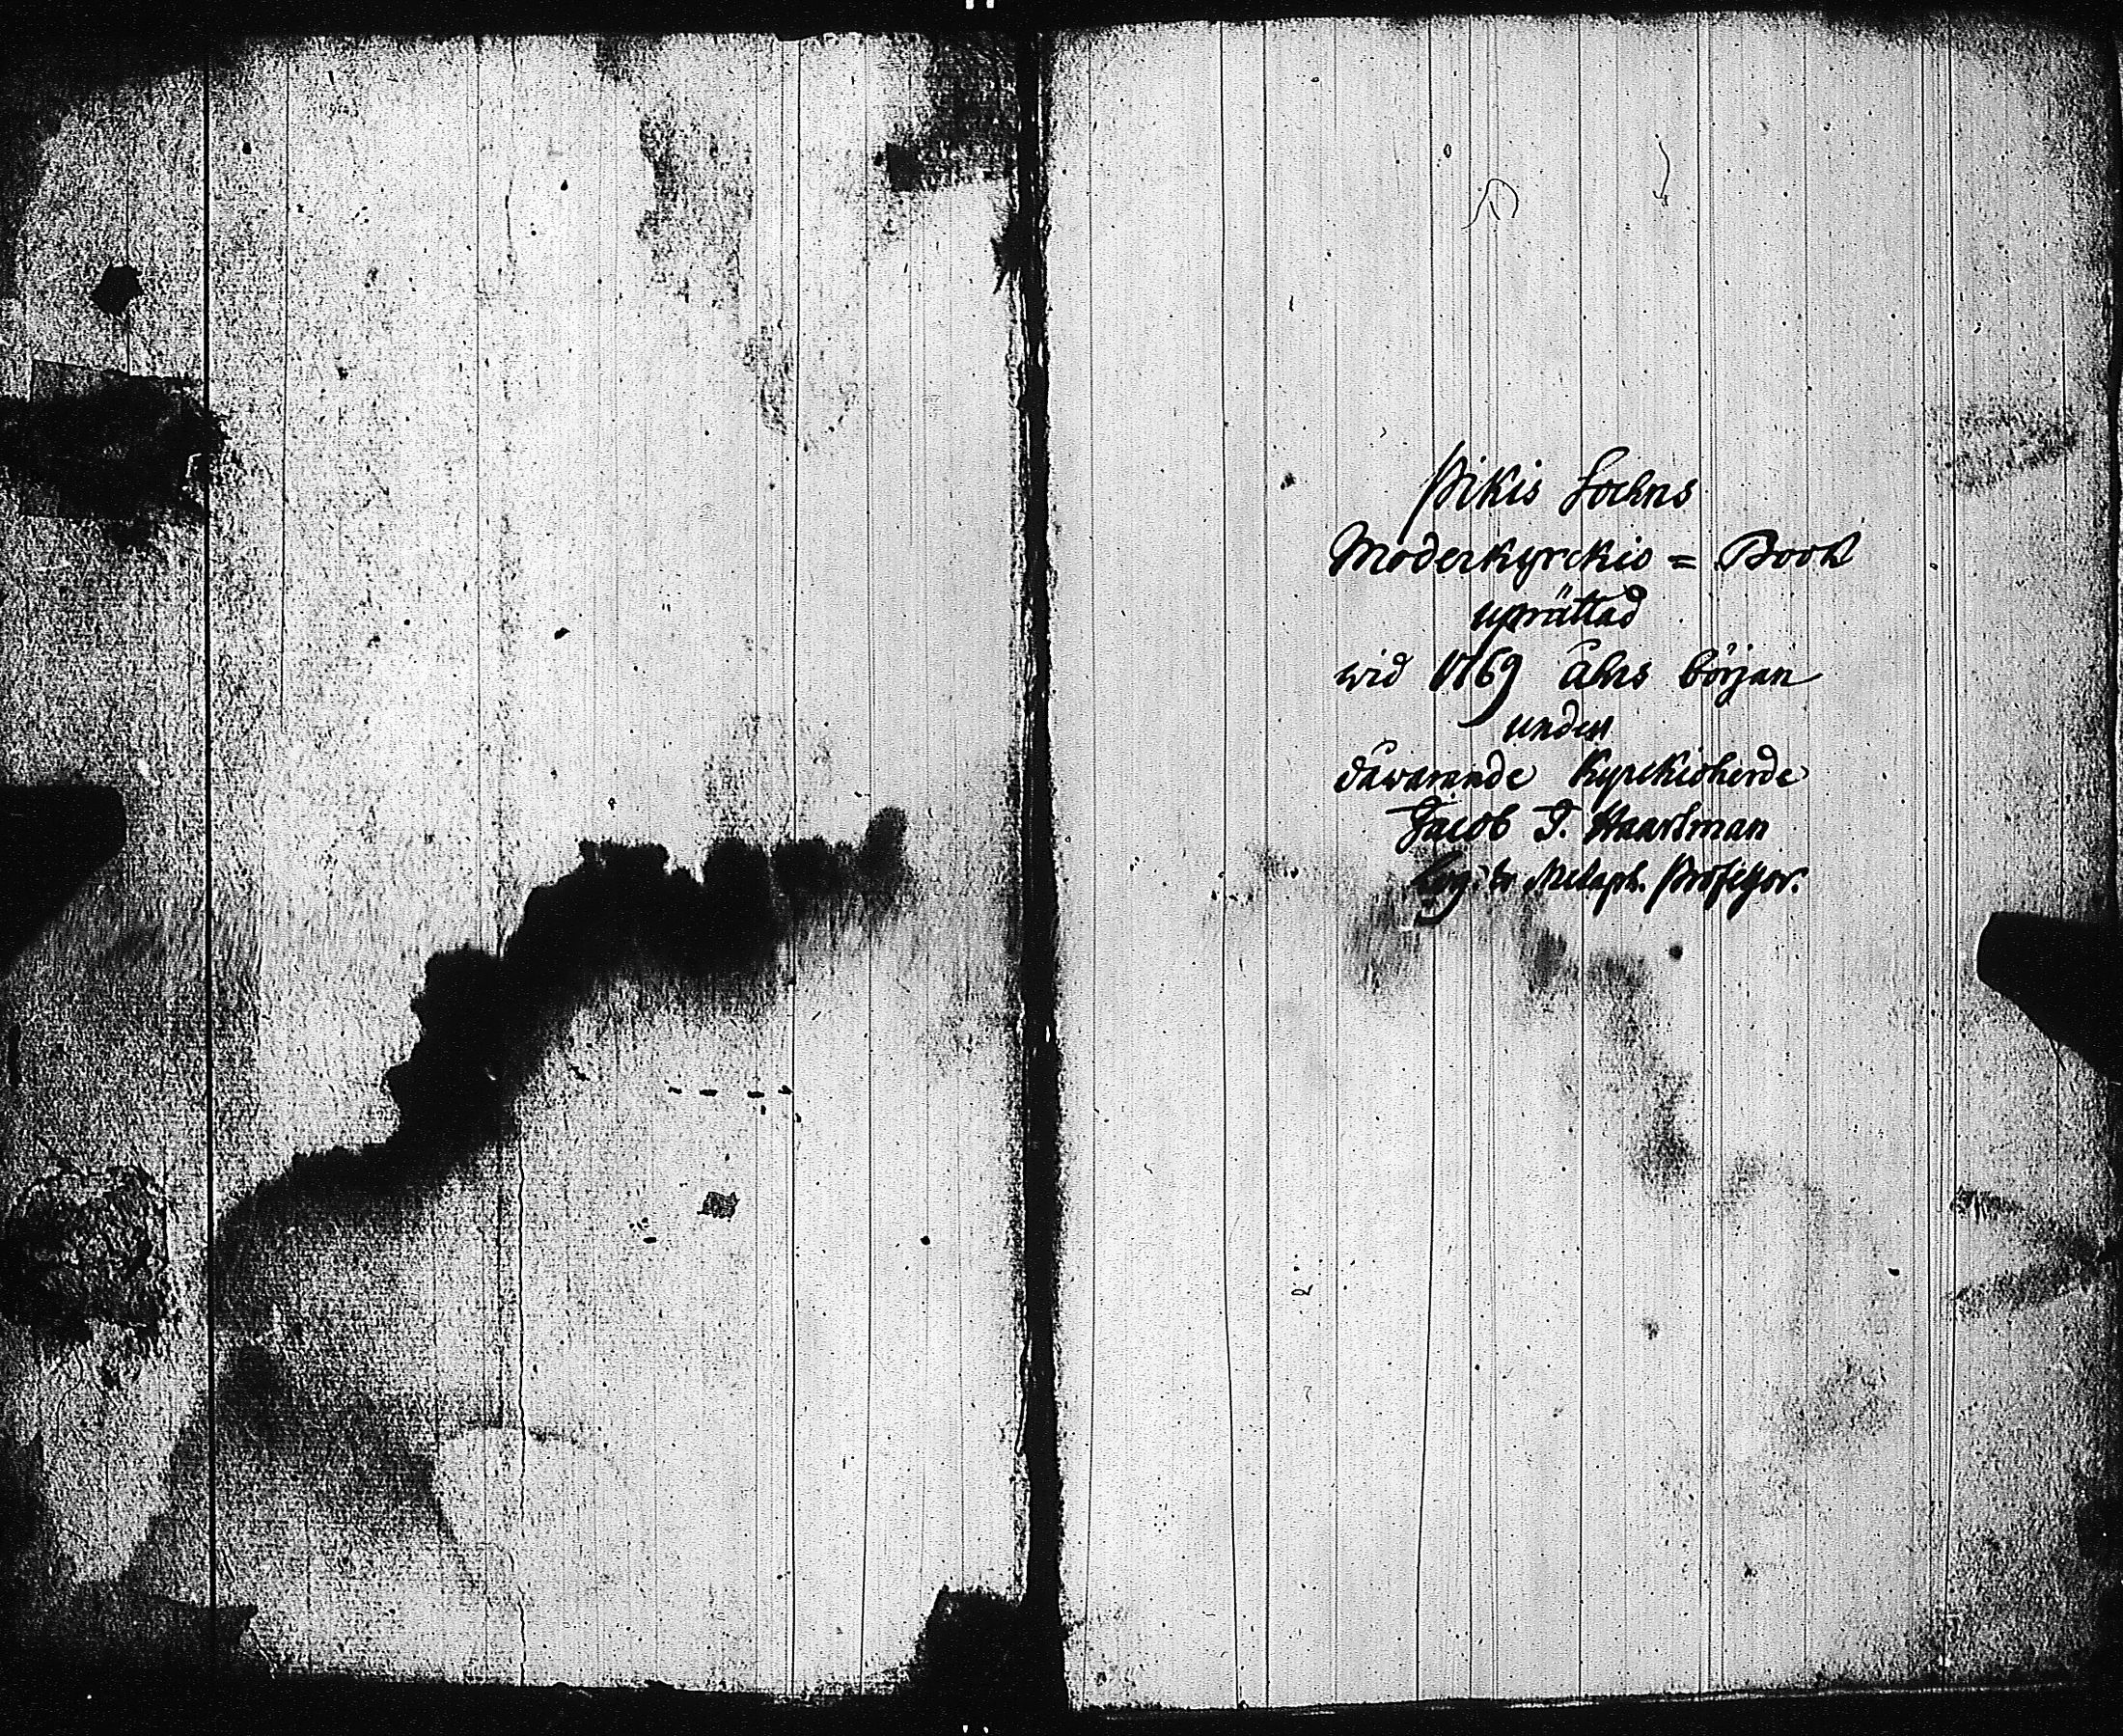 Pikis Sochns
Moderkyrckio = Book
uprättad
wid 1769 åhrs början
under
dåwarande Kyrckioherde
Jacob J. Haartman
Log: & Metaph. Professor.